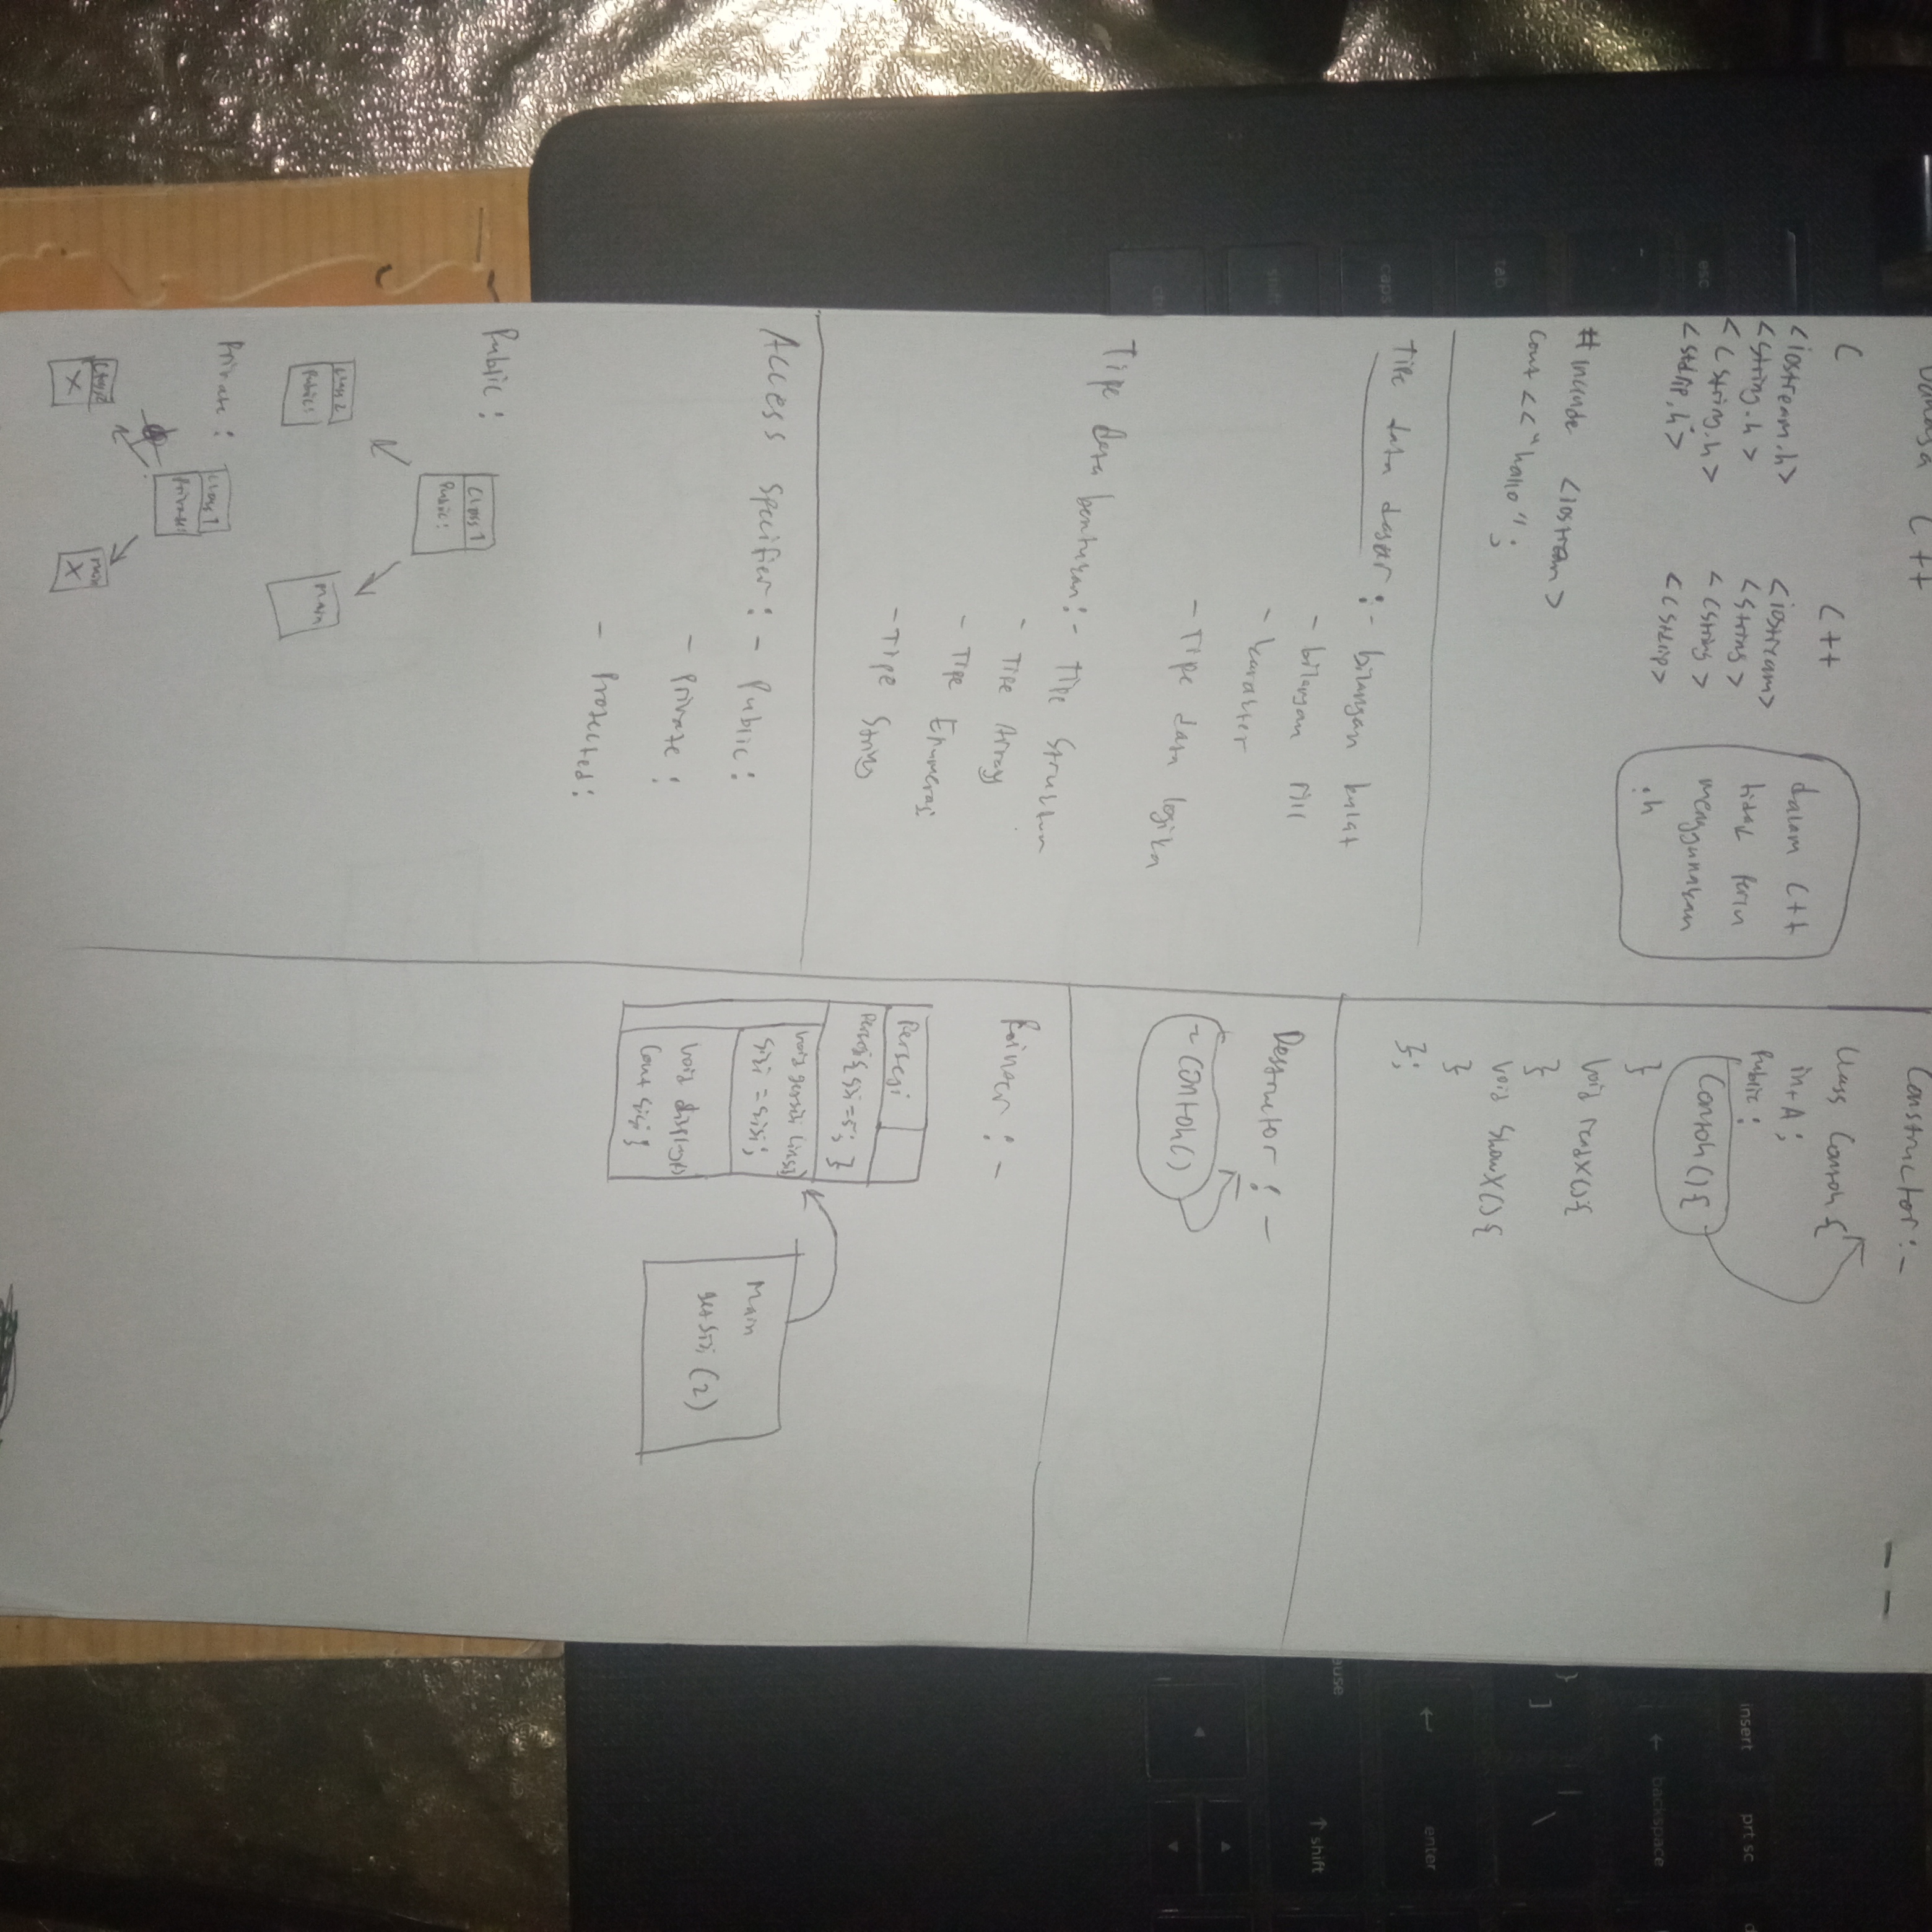 C++
C C++
<iostream.h> <iostream>
<string.h> <string>
<cstring.h> <cstring>
<stdlip.h> <cstdlip>
dalam C++
tidak perlu
menggunakan
.h
#include <iostream>
cout << "hallo";
Tipe data dasar : - bilangan bulat
- bilangan riil
- karakter
- Tipe data logika
Tipe data bentukan : - Tipe Struktur
- Tipe Array
- Tipe Enumerasi
- Tipe String
Access specifier : - Public :
- Private :
- Protected :
Public :
Class 1
Public :
Class 2
Public :
Main
Private :
Class 1
Private :
Class 2
X
Main
X
Constructor : -
Class Contoh {
int A ;
Public :
Contoh () {
}
Void readX() {
}
Void showX() {
}
};
Destructor : -
~ Contoh ()
Pointer : -
Persegi
Persegi { sisi = 5; }
sisi = sisi ;
Void display()
Cout sisi }
Main
set sisi (2)
esc
tab
caps
shift
ctrl
insert
prt sc
← backspace
} ]
| \
enter
↑ shift